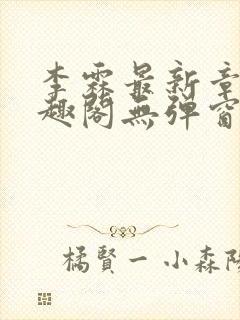 李霖最新章
趣閣無彈窗
橘賢一 小森陽